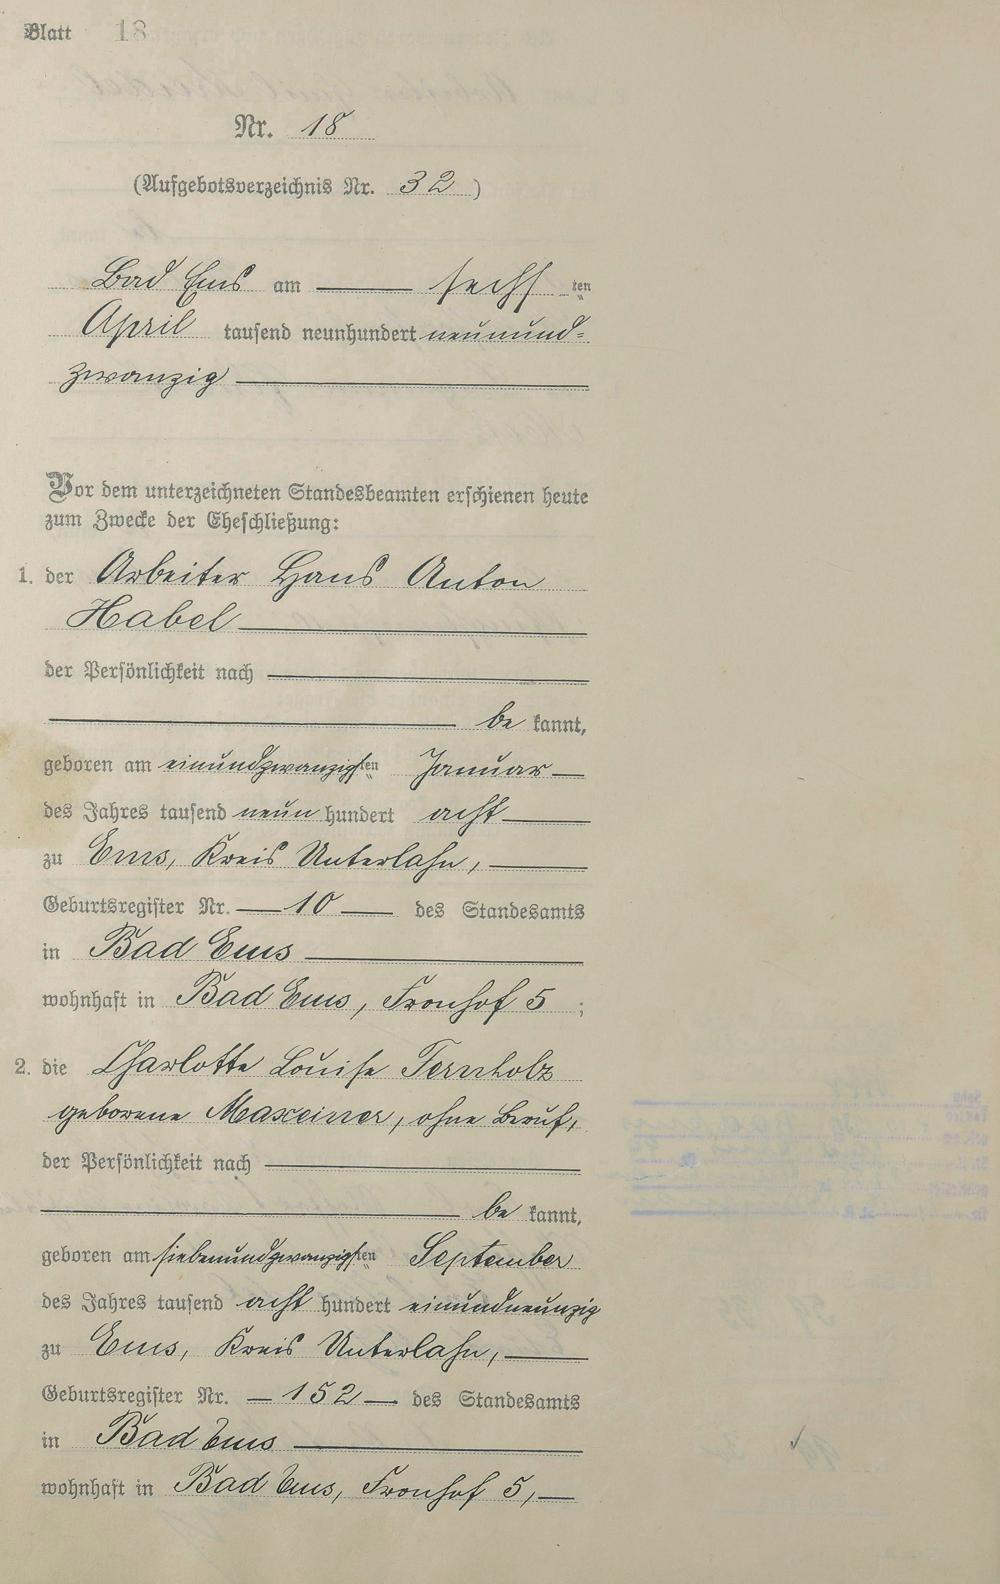 Blatt 18
Nr. 18
(Aufgebotsverzeichnis Nr. 32)
Bad Ems am sechsten
April tausend neunhundert neunund-
zwanzig
Vor dem unterzeichneten Standesbeamten erschienen heute
zum Zwecke der Eheschließung:
1. der Arbeiter Hans Anton
Habel
der Persönlichkeit nach
be kannt,
geboren am einundzwanzigsten Januar
des Jahres tausend neun hundert acht
zu Ems, Kreis Unterlahn,
Geburtsregister Nr. 10 des Standesamts
in Bad Ems
wohnhaft in Bad Ems, Fronhof 5;
2. die Charlotte Louise Ternholz
geborene Maxeiner, ohne Beruf,
der Persönlichkeit nach
be kannt,
geboren am siebenundzwanzigsten September
des Jahres tausend acht hundert einundneunzig
zu Ems, Kreis Unterlahn,
Geburtsregister Nr. 152 des Standesamts
in Bad Ems
wohnhaft in Bad Ems, Fronhof 5,